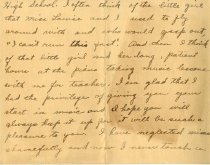 High School. I often think of the little girl
that Miss Louise and I used to fly
around with and who would gasp out,
"I can't run this fast". And then I think
of that little girl and her long, patient
hours at the piano taking music lessons
with me for teacher. I am glad that I
had the privilege of giving you your
start in music and I hope you will
always keep it up for it will be such a
pleasure to you. I have neglected mine
shamefully and now I never touch a